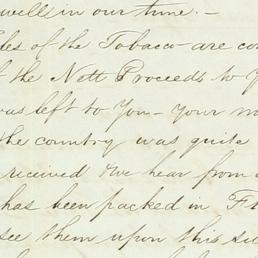 well in our time. —
les of the Tobacco are con
f the Nett Proceeds to Y
was left to You — Your m
the country was quite
received We hear from
has been packed in
see them upon this si